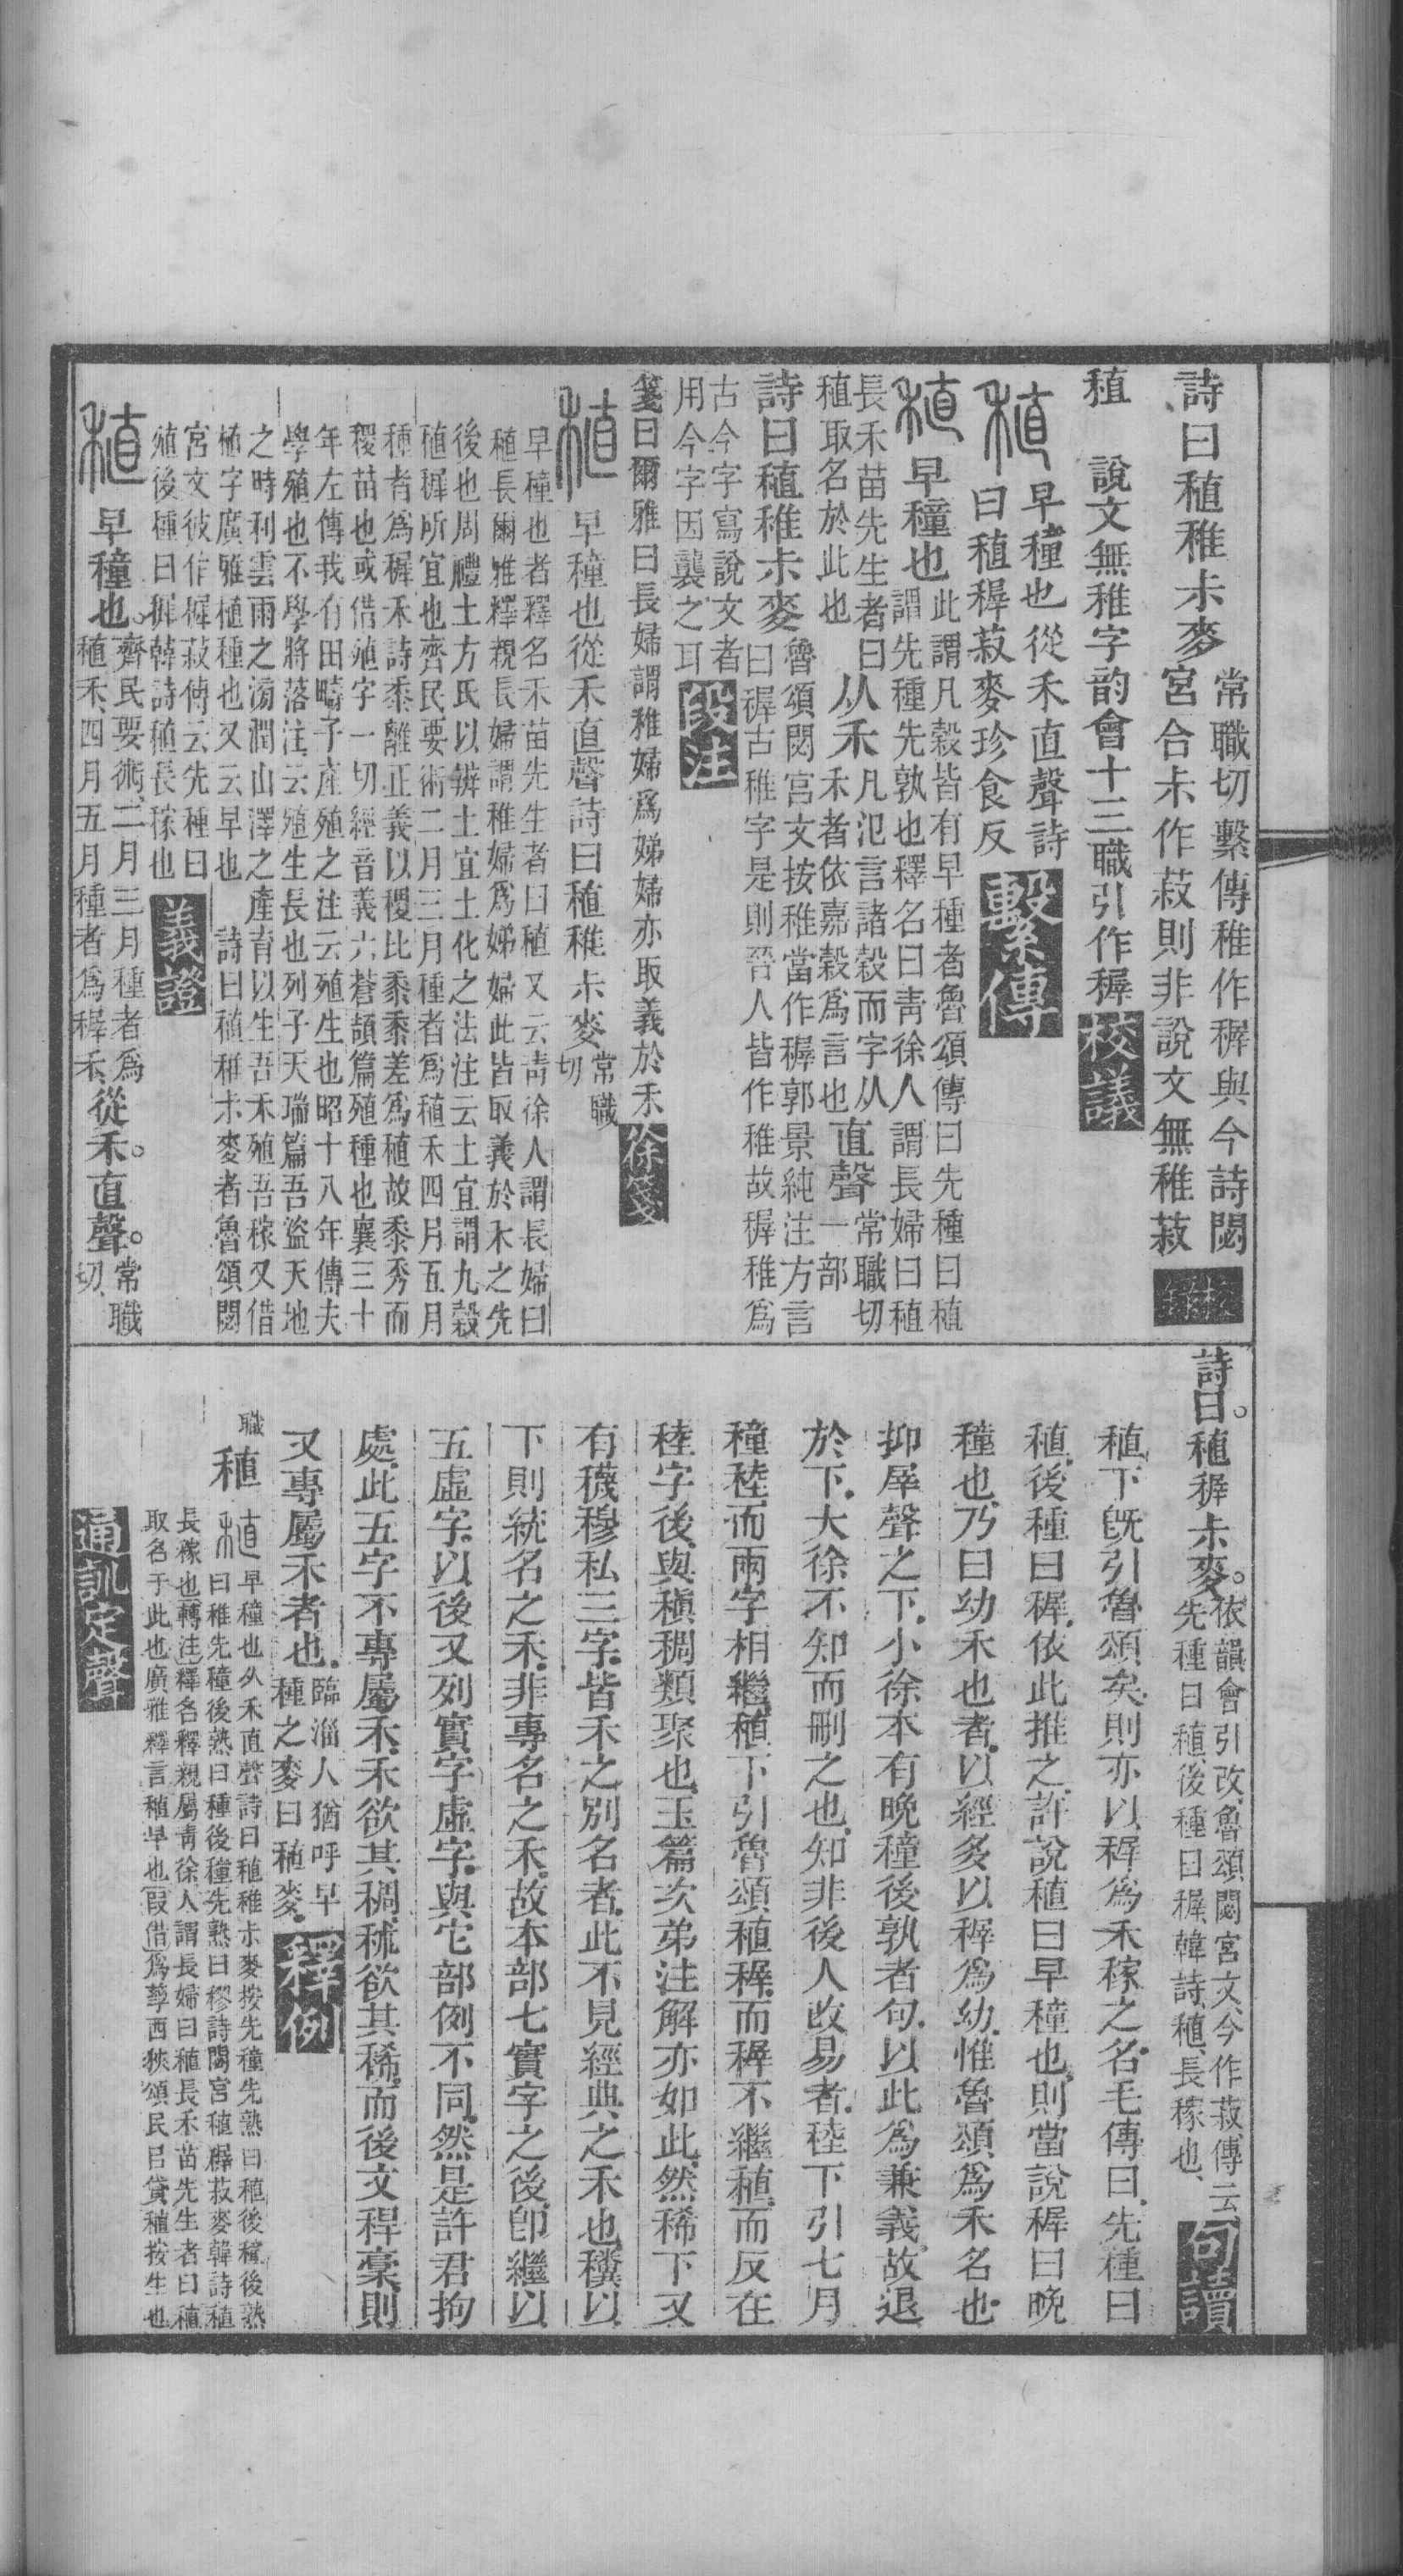 詩曰稙稚尗麥
常職切繫傳稚作稺與今詩閟
宮合尗作菽則非說文無稚菽
稙　說文無稚字韵會十三職引作稺校議
稙
早穜也從禾直聲詩
曰稙稺菽麥珍食反
繫傳
稙早穜也
此謂凡穀皆有早種者魯頌傳曰先種曰稙
謂先種先孰也釋名曰靑徐人謂長婦曰稙
長禾苗先生者曰
稙取名於此也
从禾
凡氾言諸穀而字从
禾者依嘉穀爲言也
直聲
常職切
一部
詩曰稙稚尗麥
魯頌閟宮文按稚當作稺郭景純注方言
曰稺古稚字是則晉人皆作稚故稺稚爲
古今字寫說文者
用今字因襲之耳
段注
箋曰爾雅曰長婦謂稚婦爲娣婦亦取義於禾徐箋
稙早穜也從禾直聲詩曰稙稚尗麥
常職
切
早穜也者釋名禾苗先生者曰稙又云靑徐人謂長婦曰
稙長爾雅釋親長婦謂稚婦爲娣婦此皆取義於禾之先
後也周禮土方氏以辨土宜土化之法注云土宜謂九穀
稙穉所宜也齊民要術二月三月種者爲稙禾四月五月
種者爲穉禾詩黍離正義以稷比黍黍差爲稙故黍秀而
稷苗也或借殖字一切經音義六蒼頡篇殖種也襄三十
年左傳我有田疇子產殖之注云殖生也昭十八年傳夫
學殖也不學將落注云殖生長也列子天瑞篇吾盜天地
之時利雲雨之滂潤山澤之產育以生吾禾殖吾稼又借
植字廣雅植種也又云早也　詩曰稙稚尗麥者魯頌閟
宮文彼作穉菽傳云先種曰
殖後種曰穉韓詩稙長稼也
義證
稙早穜也。
齊民要術、二月三月種者爲
稙禾、四月五月種者爲稺禾、
從禾。直聲。
常職
切、
詩曰。稙稺尗麥。
依韻會引改、魯頌閟宮文、今作菽、傳云、
先種曰稙、後種曰稺、韓詩、稙、長稼也、
句讀
稙下旣引魯頌矣、則亦以稺爲禾稼之名、毛傳曰、先種曰
稙、後種曰稺、依此推之、許說稙曰早穜也、則當說稺曰晚
穜也、乃曰幼禾也者、以經多以稺爲幼、惟魯頌爲禾名也、
抑犀聲之下、小徐本有晚穜後孰者句、以此爲兼義、故退
於下、大徐不知而刪之也、知非後人改易者、稑下引七月
穜稑、而兩字相繼、稙下引魯頌稙稺、而稺不繼稙、而反在
稑字後、與稹稠類聚也、玉篇次弟注解亦如此、然稀下又
有穖穆私三字、皆禾之別名者、此不見經典之禾也、穬以
下則統名之禾、非專名之禾、故本部七實字之後、卽繼以
五虛字、以後又列實字虛字、與它部例不同、然是許君拘
處、此五字不專屬禾、禾欲其稠、秫欲其稀、而後文稈稾則
又專屬禾者也、
臨淄人猶呼早
種之麥曰稙麥、
釋例
職
稙
稙早穜也从禾直聲詩曰稙稚尗麥按先穜先熟曰稙後穜後熟
曰稚先穜後熟曰種後穜先熟曰穋詩閟宮稙穉菽麥韓詩稙
長稼也轉注釋名釋親屬靑徐人謂長婦曰稙長禾苗先生者曰稙
取名于此也廣雅釋言稙早也叚借爲孳西狹頌民㠯貨稙按生也
通訓定聲